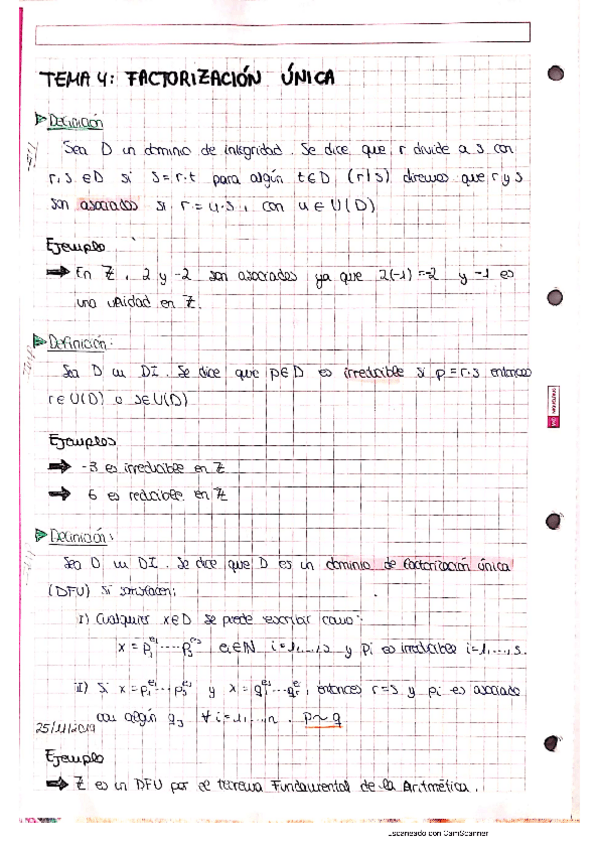 TEMA 4: FACTORIZACIÓN ÚNICA
Definición
Sea D un dominio de integridad. Se dice que r divide a s con
r,s ∈ D si s=r·t para algún t∈D (r|s) diremos que r y s
son asociados si r=u·s, con u∈U(D)
Ejemplo
→ En Z, 2 y -2 son asociados ya que 2(-1)=-2 y -1 es
una unidad en Z.
Definición:
Sea D un DI. Se dice que p∈D es irreducible si p=r·s entonces
r∈U(D) o s∈U(D)
Ejemplos
→ -3 es irreducible en Z
→ 6 es reducible en Z
Definición:
Sea D un DI. Se dice que D es un dominio de factorización única
(DFU) si satisfacen:
I) Cualquier x∈D se puede escribir como:
x = p₁^e₁ ····· pₛ^eₛ eᵢ∈N i=1,...,s y pᵢ es irreducible i=1,...,s.
II) Si x=p₁^e₁···pₛ^eₛ y x=q₁^e₁···qᵣ^eᵣ, entonces r=s y pᵢ es asociado
con algún qⱼ ∀i=1,...,n. p~q
25/11/2019
Ejemplo
→ Z es un DFU por el teorema Fundamental de la Aritmética.
Escaneado con CamScanner